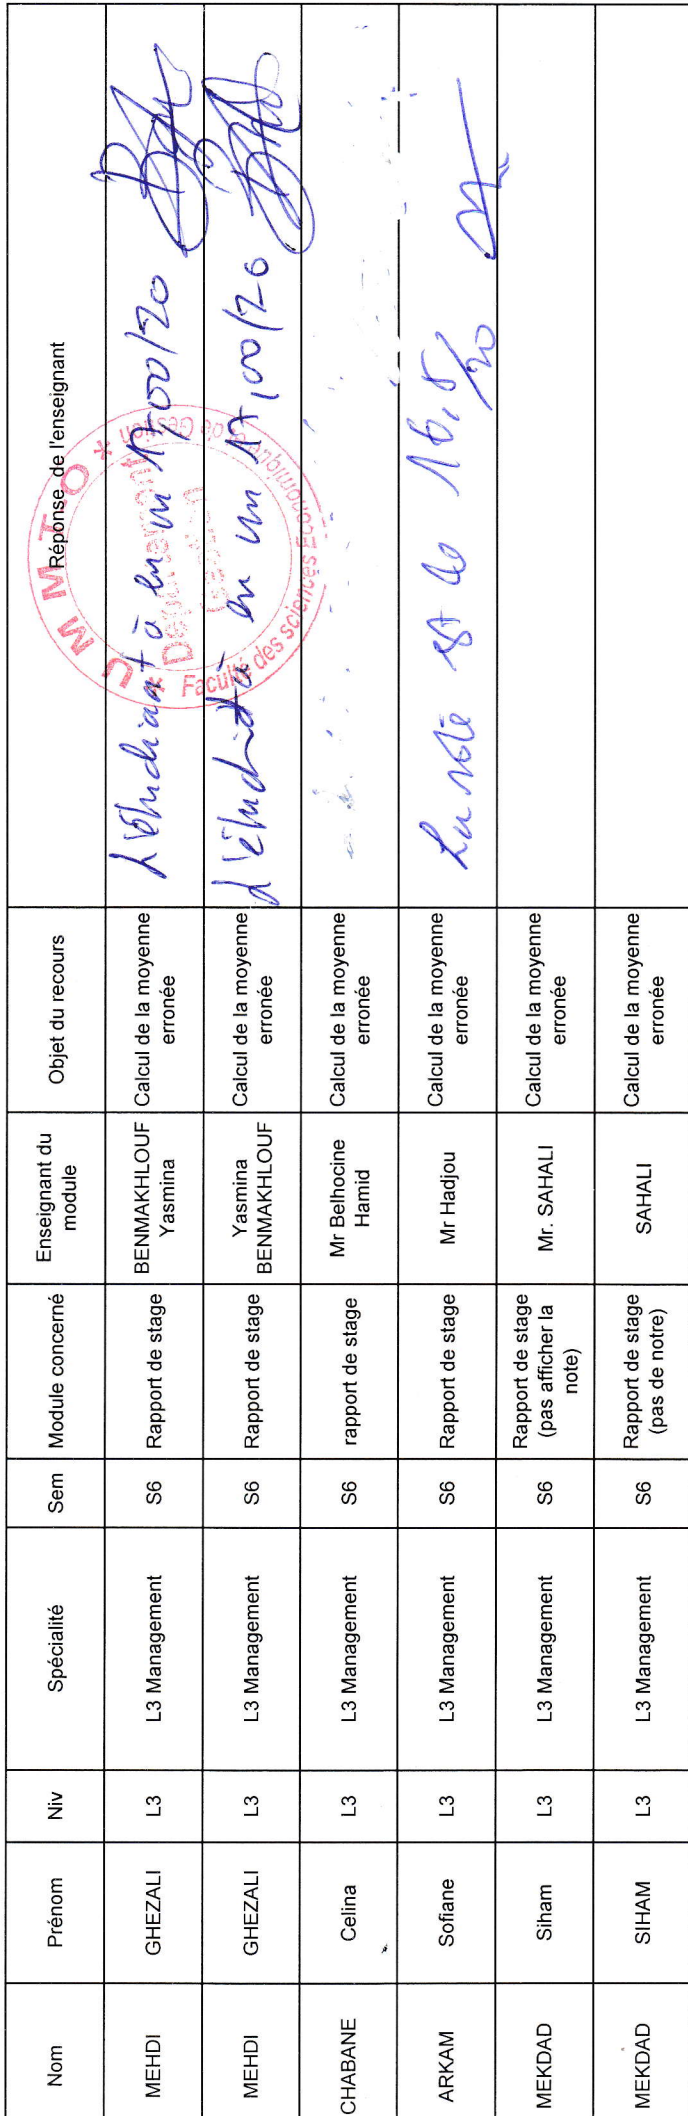 Nom Prénom Niv Spécialité Sem Module concerné Enseignant du module Objet du recours Réponse de l'enseignant
MEHDI GHEZALI L3 L3 Management S6 Rapport de stage BENMAKHLOUF Yasmina Calcul de la moyenne erronée L'étudiant à eu un 17,00/20
MEHDI GHEZALI L3 L3 Management S6 Rapport de stage Yasmina BENMAKHLOUF Calcul de la moyenne erronée L'étudiant à eu un 17,00/20
CHABANE Celina L3 L3 Management S6 rapport de stage Mr Belhocine Hamid Calcul de la moyenne erronée
ARKAM Sofiane L3 L3 Management S6 Rapport de stage Mr Hadjou Calcul de la moyenne erronée La note est de 16,5/20
MEKDAD Siham L3 L3 Management S6 Rapport de stage (pas afficher la note) Mr. SAHALI Calcul de la moyenne erronée
MEKDAD SIHAM L3 L3 Management S6 Rapport de stage (pas de notre) SAHALI Calcul de la moyenne erronée
U M M T O
Département
Gestion
Faculté des sciences Economiques et de Gestion